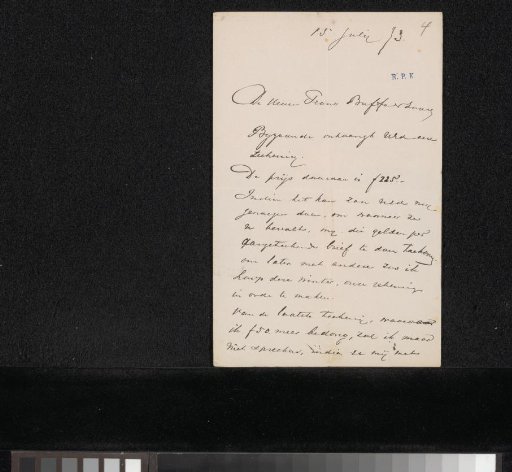 15 July /3 4
R.P.K
De Heeren Frans Buffa & Zoonen
Bijgaande ontvangt UEd eene
teekening.
De prijs daarvan is f 225.-
Indien het kan zou UEd mij
genoegen doen, om wanneer ze
U bevalt, mij die gelden per
aangeteekende brief te doen toekomen
om later met andere zoo ik
hoop deze winter, onze rekening
in orde te maken.
Van de laatste teekening, waarvan
ik f 50 meer bedong, zal ik maar
niet spreken, indien ze mij maar